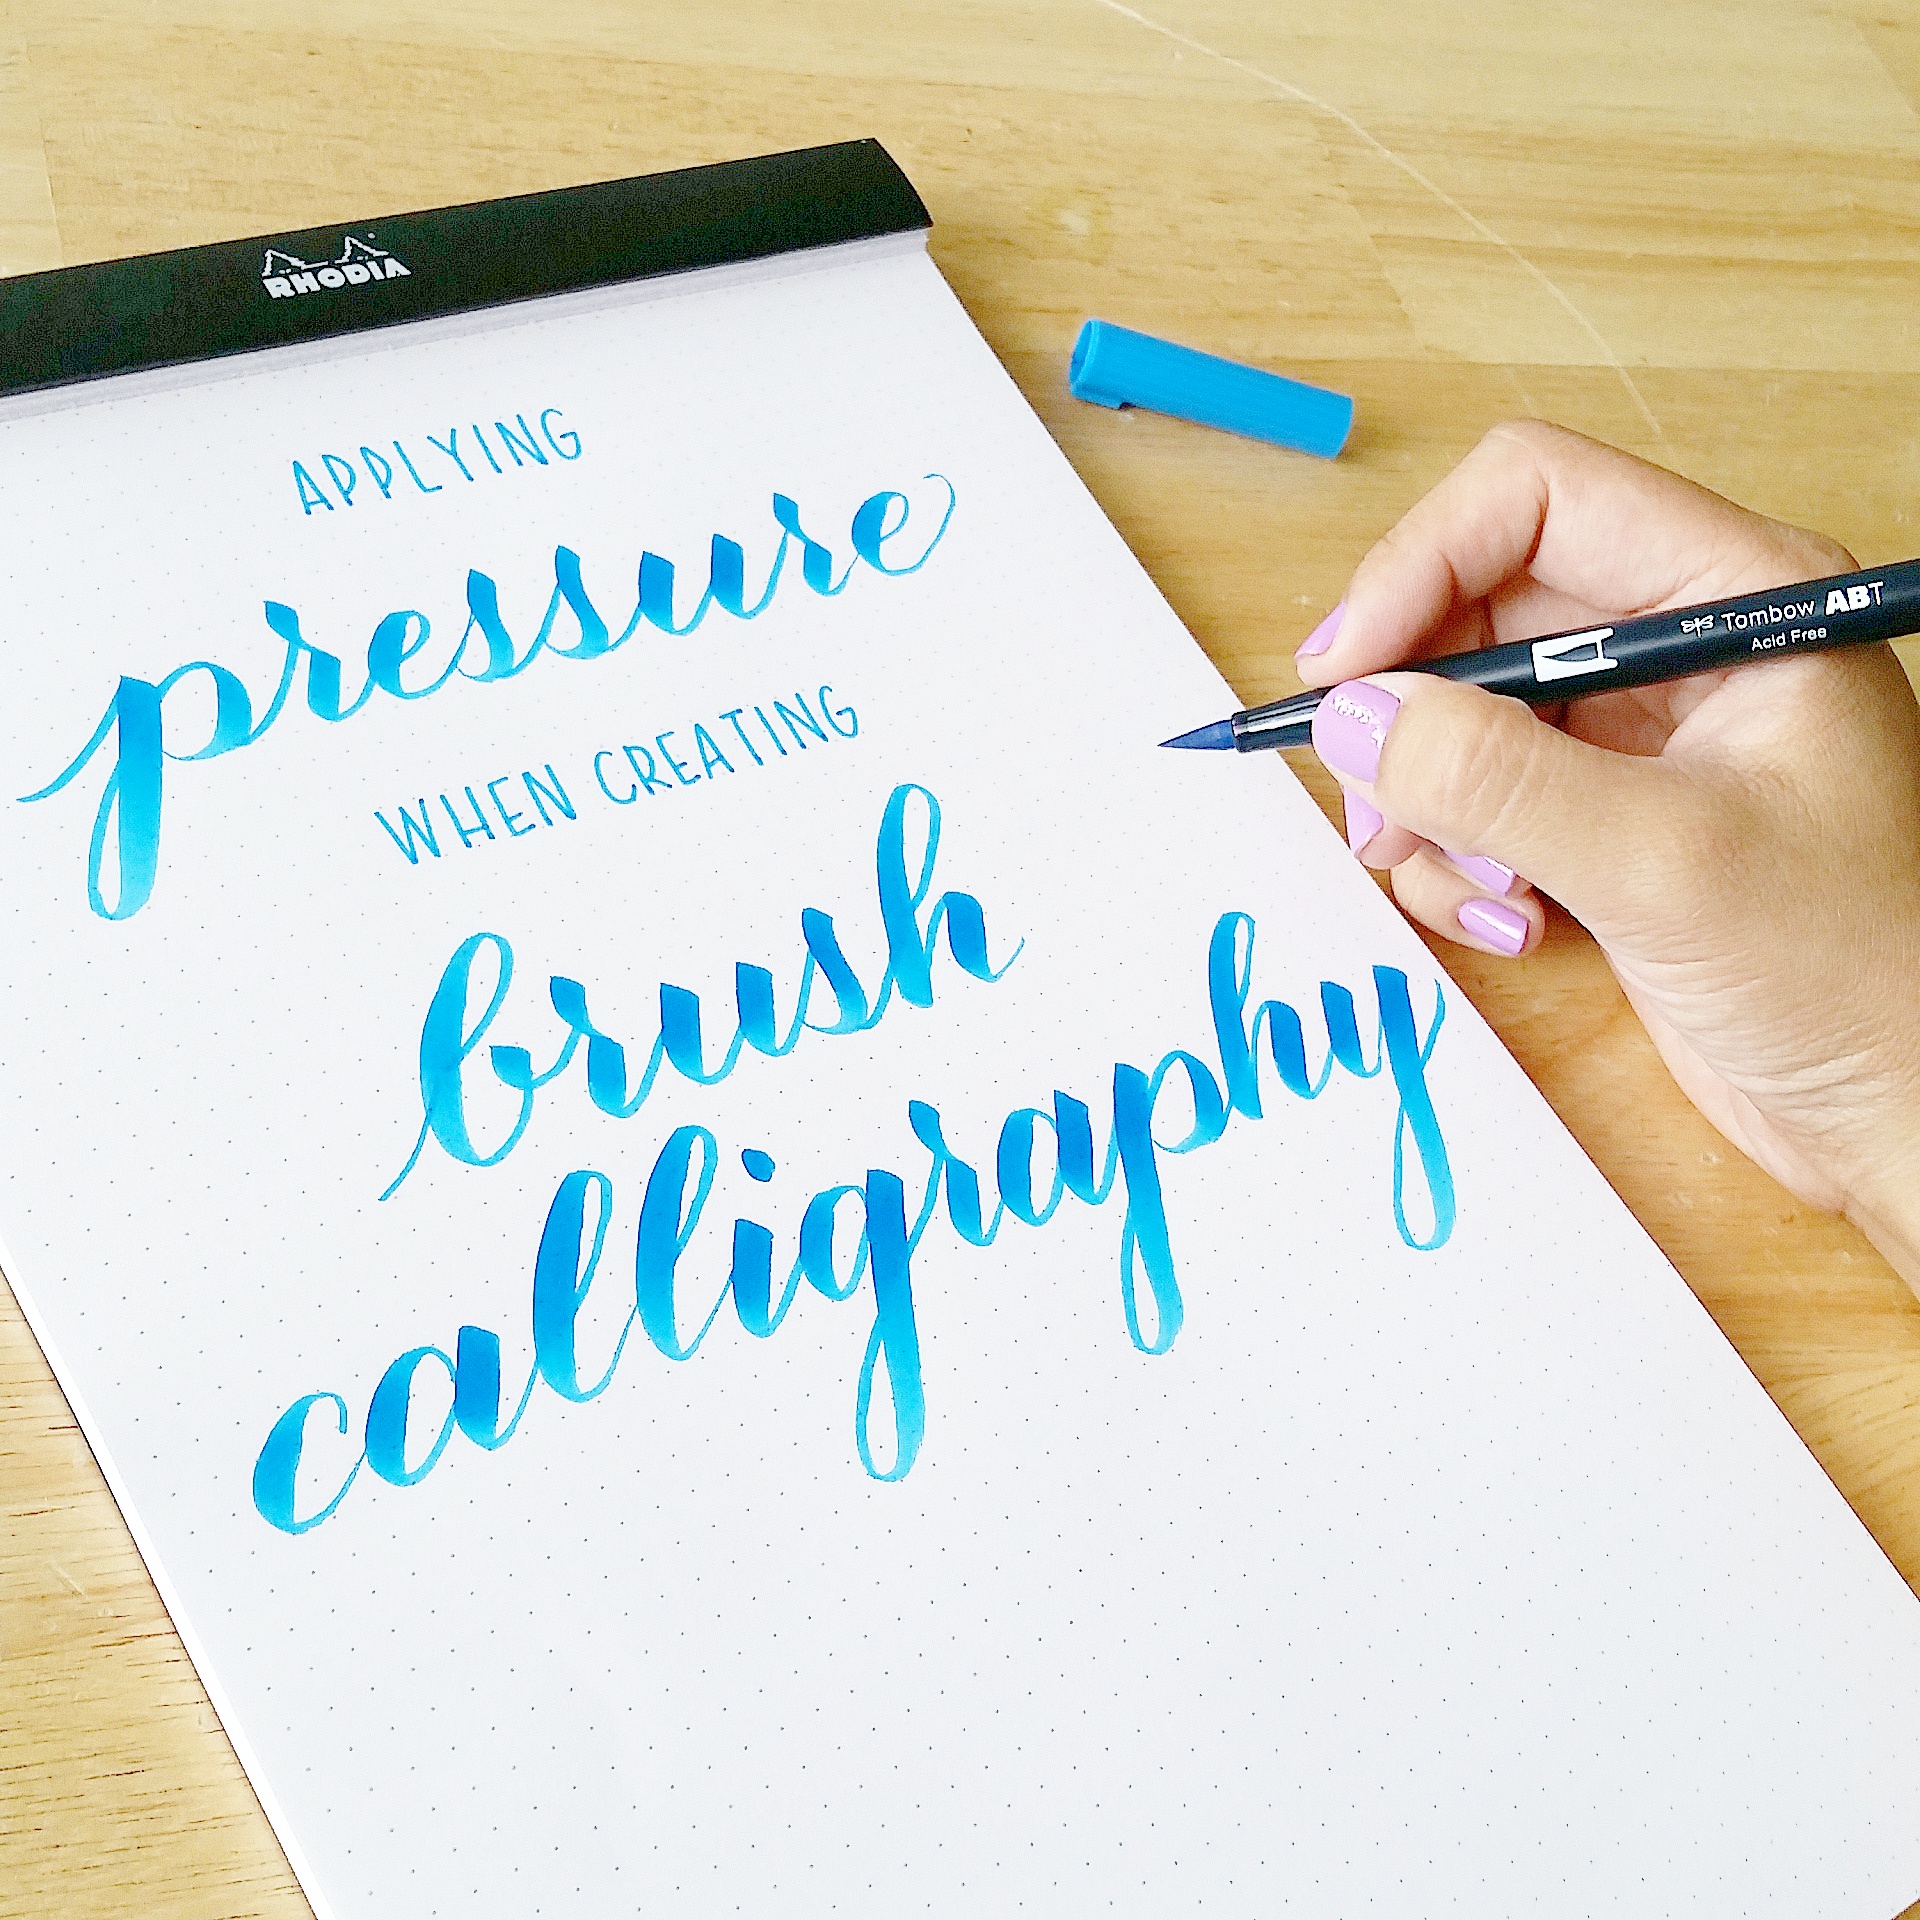 RHODIA
APPLYING
pressure
WHEN CREATING
brush
calligraphy
Tombow ABT
Acid Free